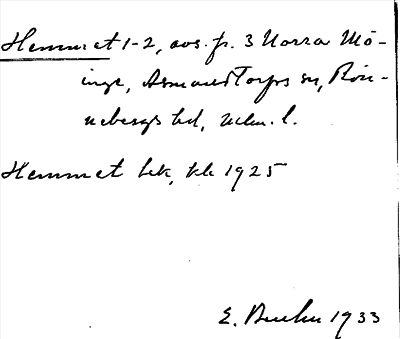 Hemmet 1-2, avs. fr. 3 Norra Mö-
inge, Asmundtorps sn, Rön-
nebergs hd, Mlm. l.
Hemmet bek, kk 1925
E. 1933